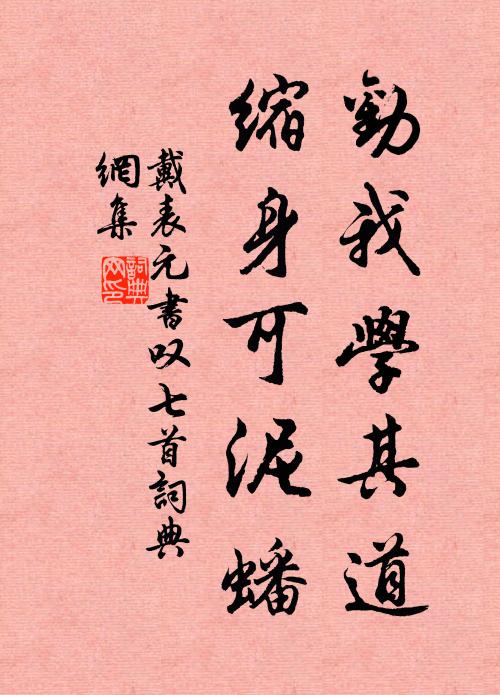 勸我學其道
縮身可泥蟠
戴表元書叹七首詞典
網集
詞典
網印